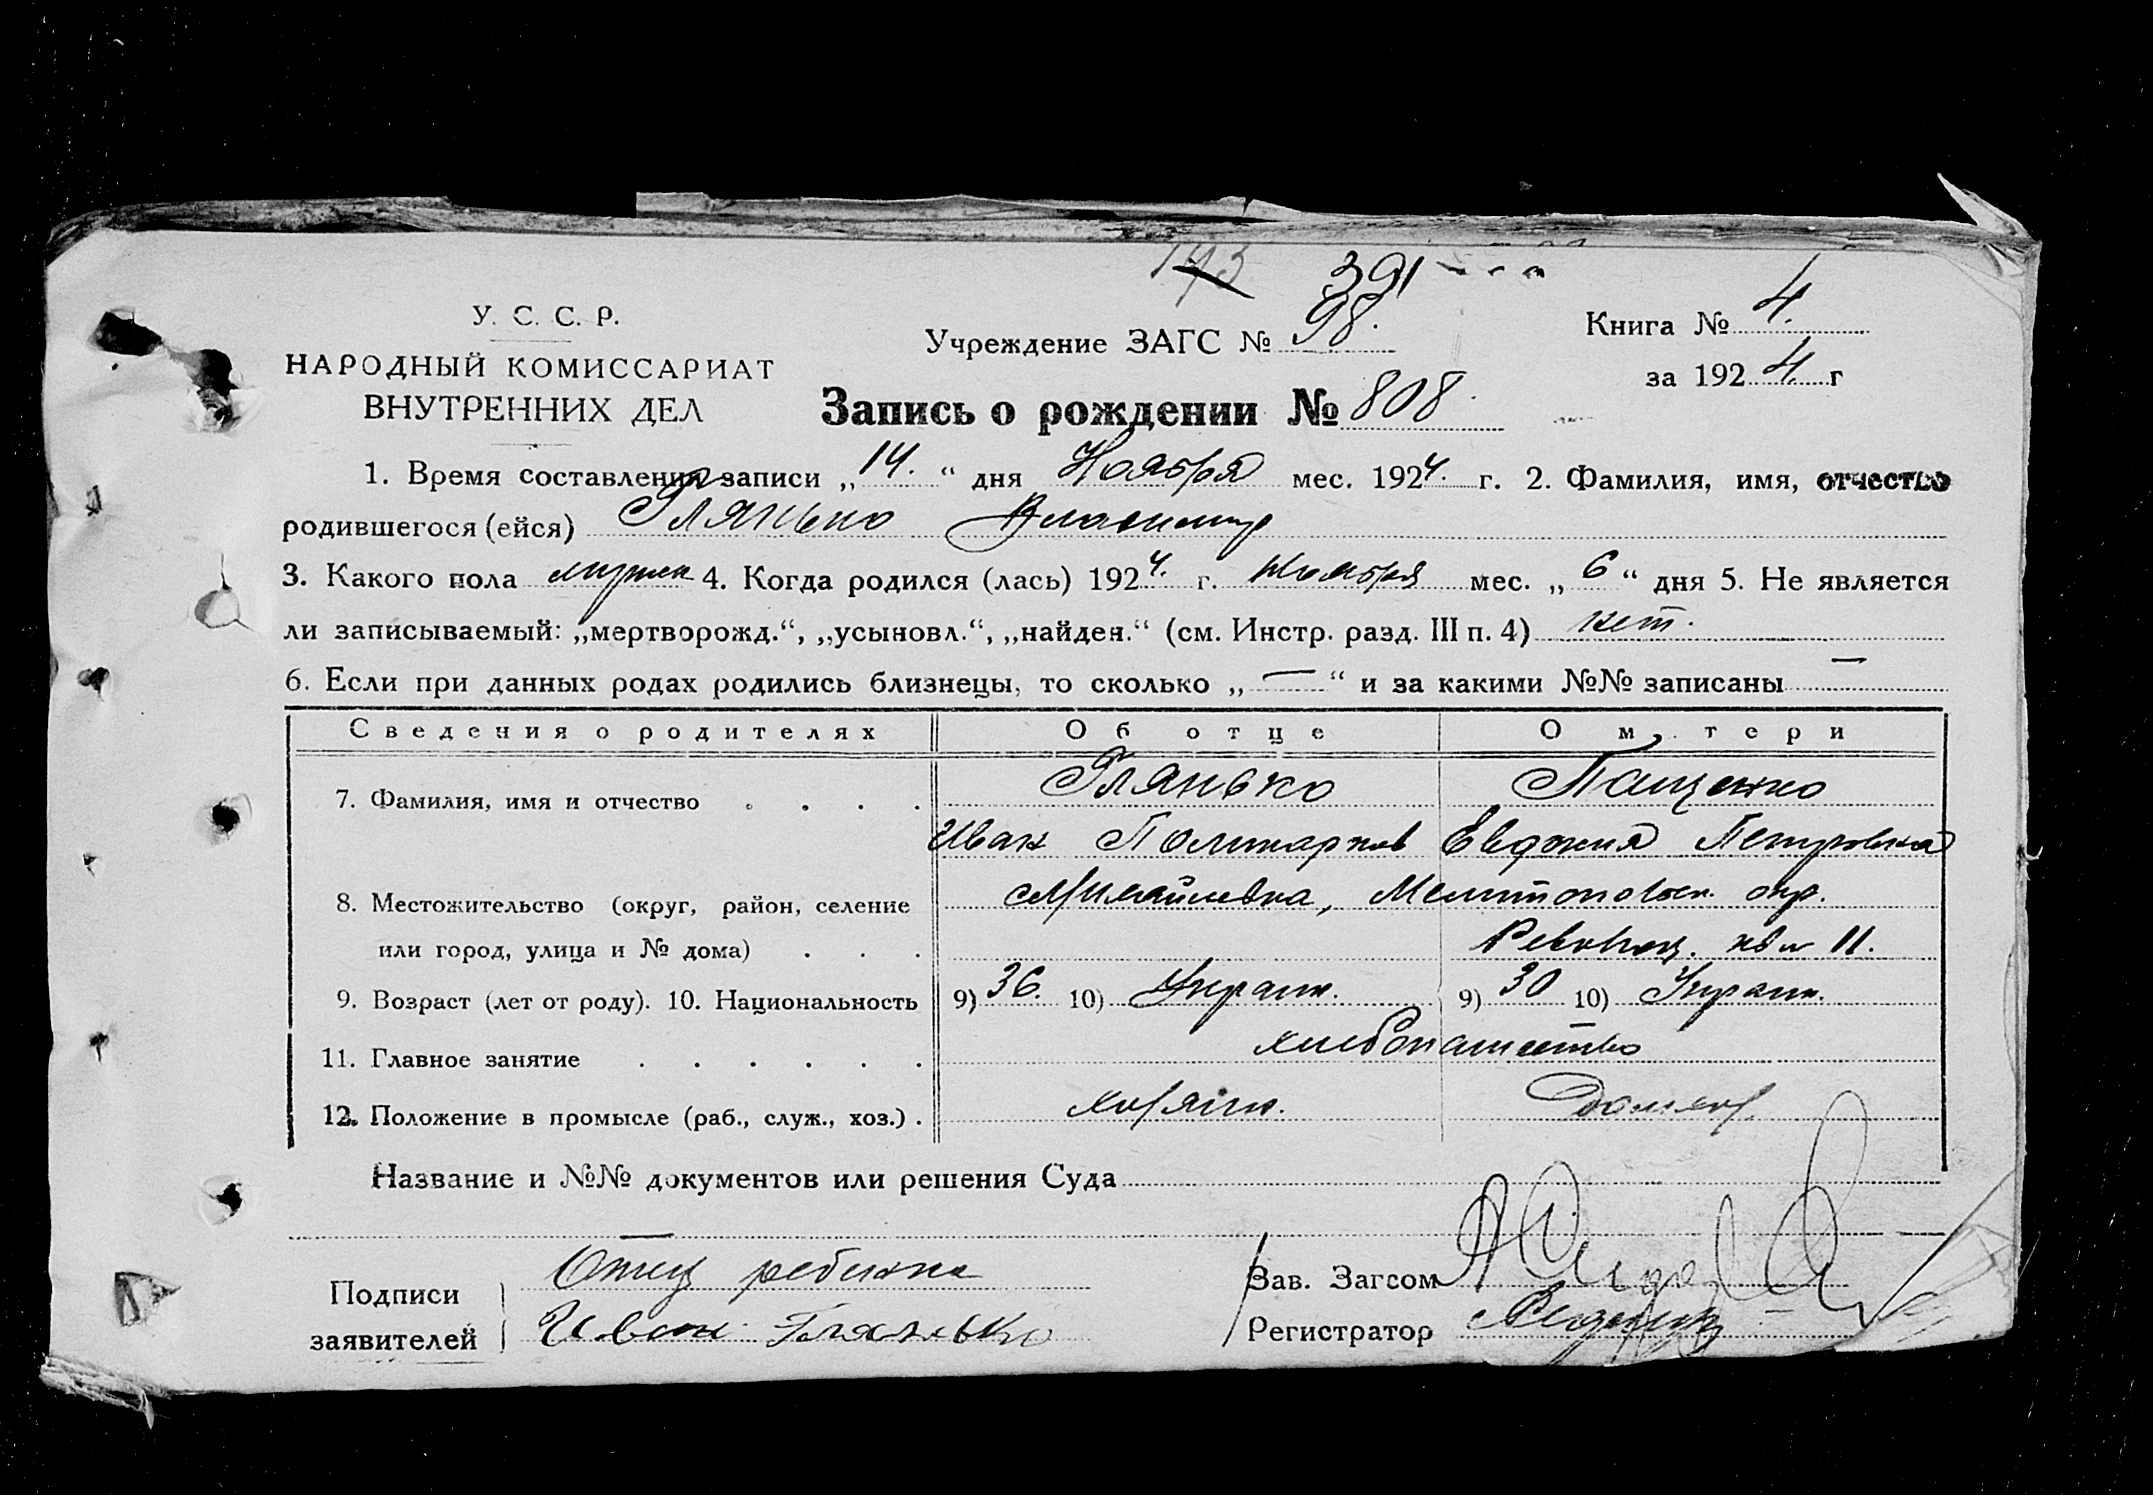 193
391
У. С. С. Р.
Учреждение ЗАГС № 98.
Книга № 4.
НАРОДНЫЙ КОМИССАРИАТ
за 1924. г
ВНУТРЕННИХ ДЕЛ
Запись о рождении № 808.
1. Время составления записи „14.“ дня Ноября мес. 1924. г. 2. Фамилия, имя, отчество
родившегося (ейся) Глянько Владимир
3. Какого пола мужск 4. Когда родился (лась) 1924. г. ноября мес. „6“ дня 5. Не является
ли записываемый: „мертворожд.“, „усыновл.“, „найден.“ (см. Инстр. разд. III п. 4) нет.
6. Если при данных родах родились близнецы, то сколько „—“ и за какими №№ записаны —
Сведения о родителях Об отце О матери
7. Фамилия, имя и отчество . . . . Глянько Пащенко
Иван Поликарпов Евдокия Петровна
8. Местожительство (округ, район, селение с. Михайловка, Мелитопольск. окр.
или город, улица и № дома) . . . кв 11.
9. Возраст (лет от роду). 10. Национальность 9) 36. 10) Украин. 9) 30 10) Украин.
11. Главное занятие . . . . . . хлебопашество
12. Положение в промысле (раб., служ., хоз.) . хозяин. Домхоз.
Название и №№ документов или решения Суда
Подписи заявителей Отец ребенка
Иван Глянько
Зав. Загсом
Регистратор